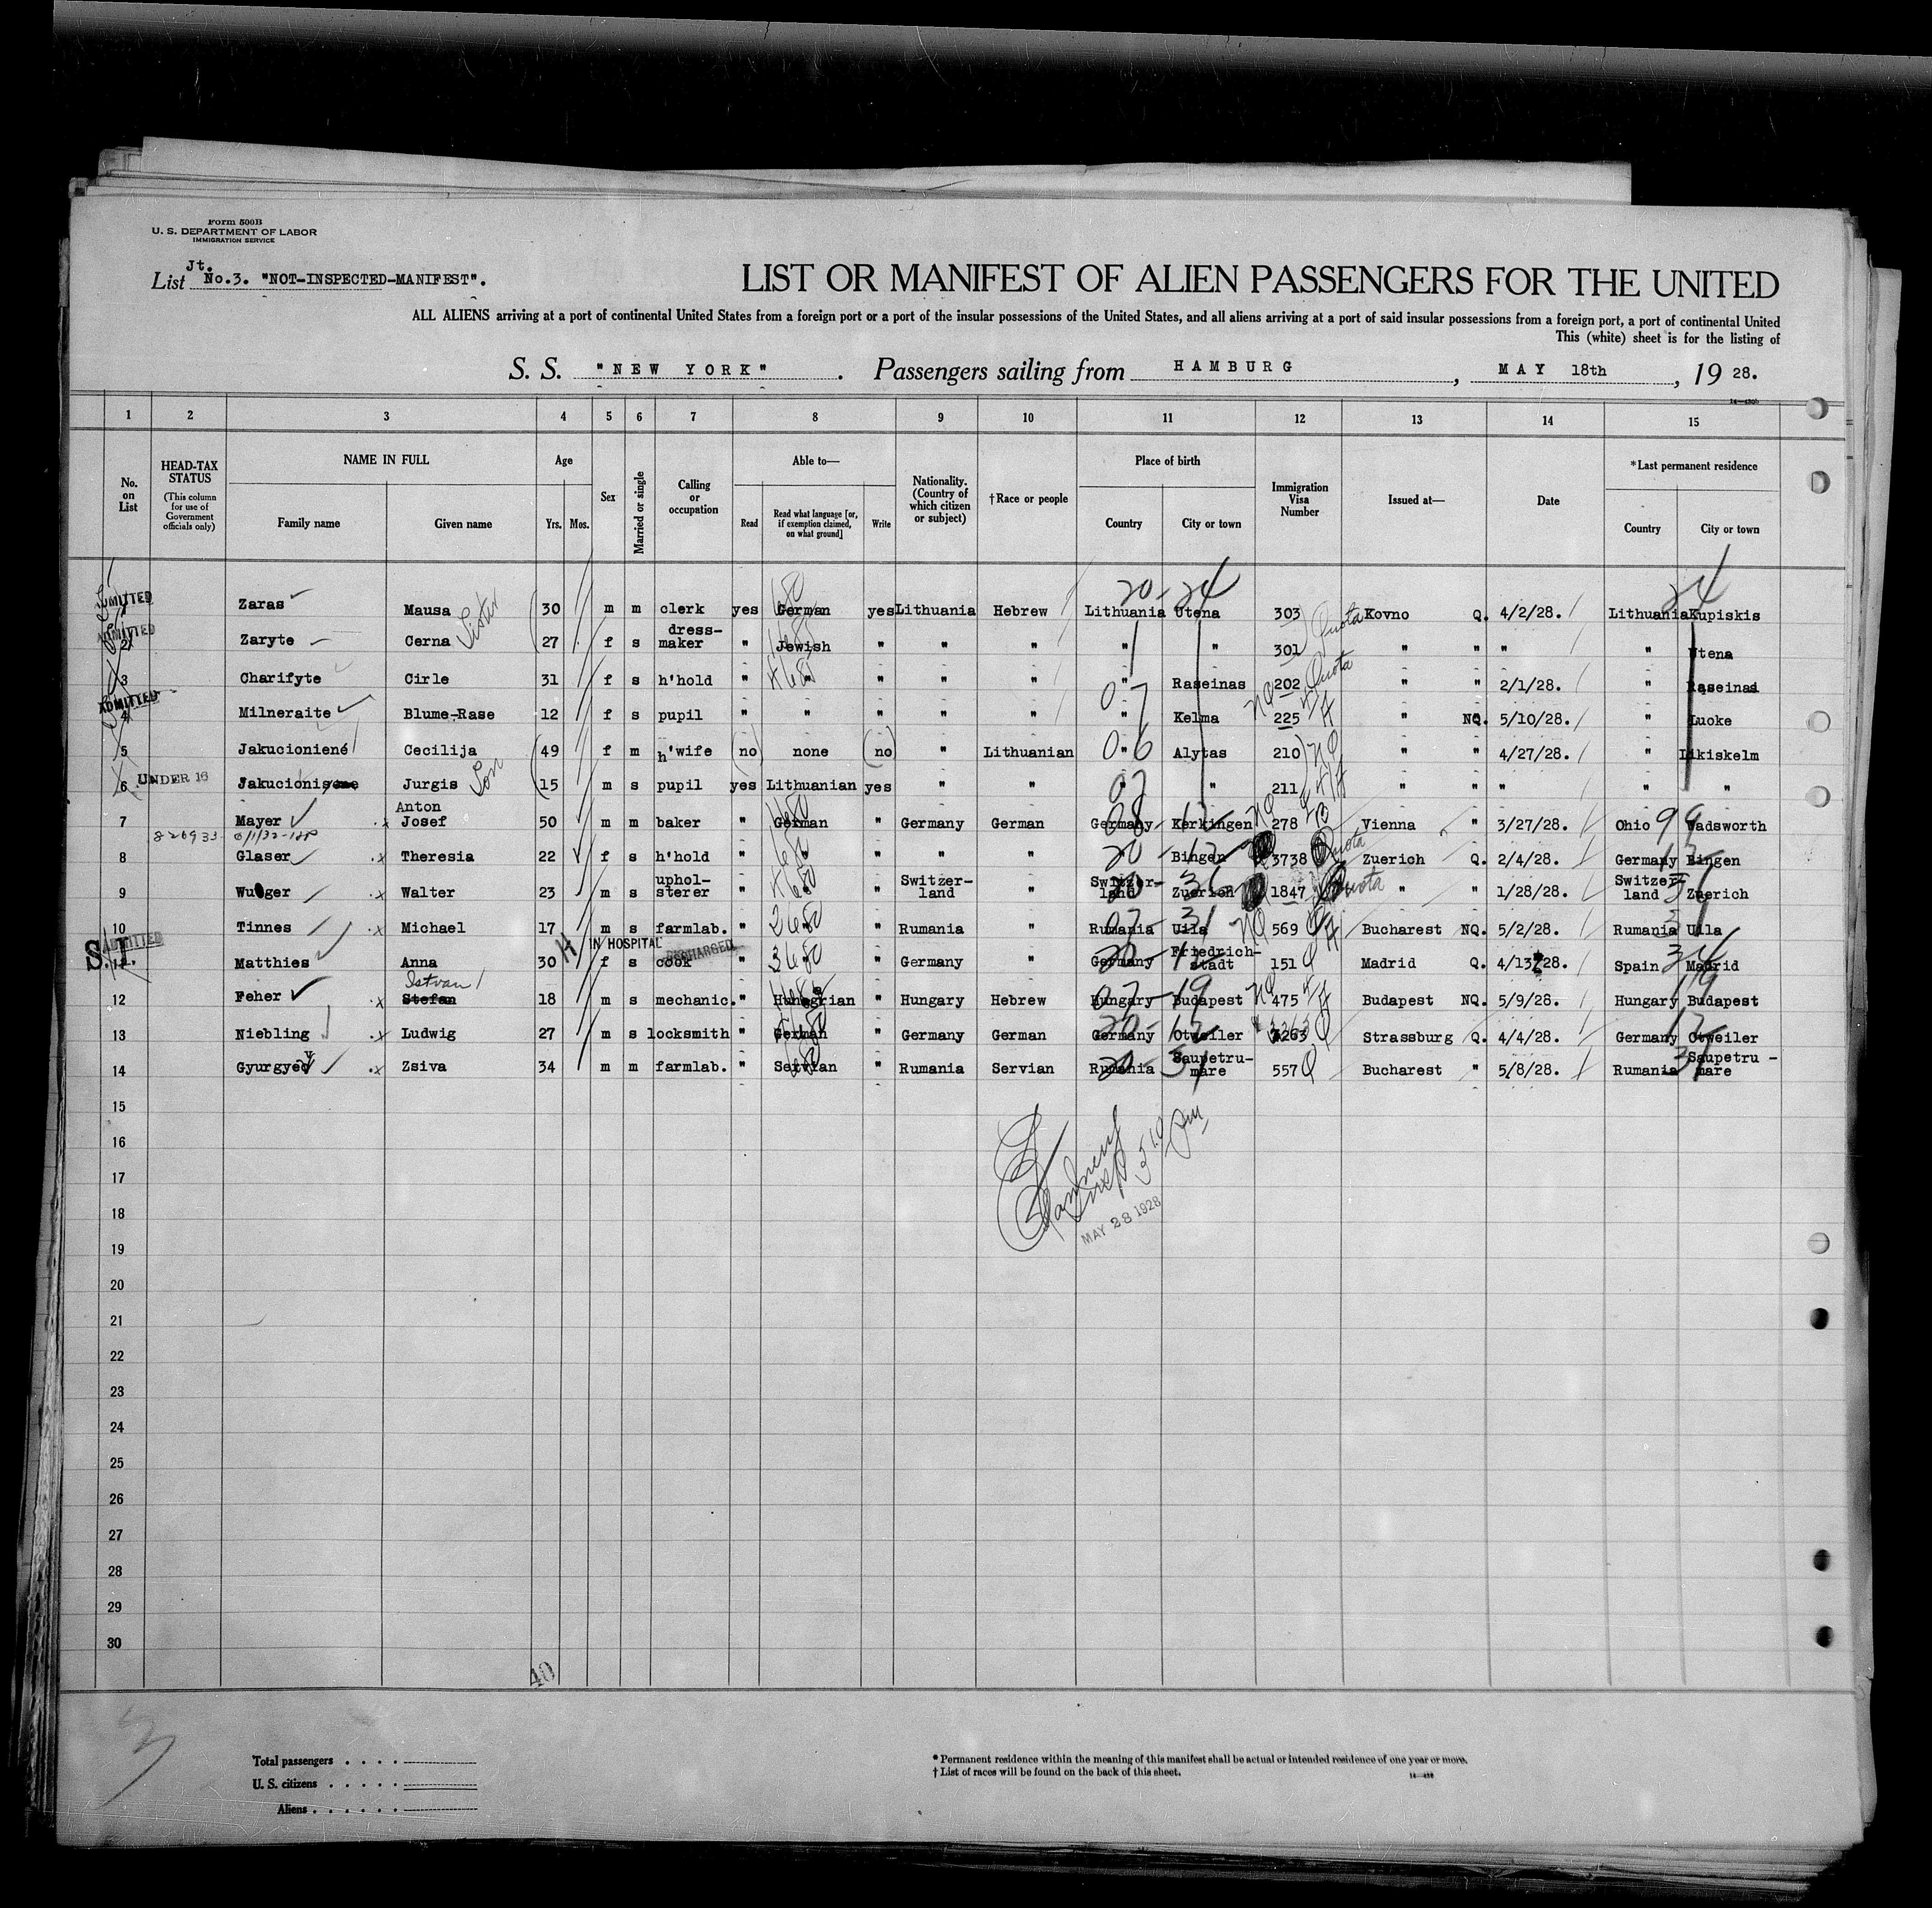 Form 500B
U. S. DEPARTMENT OF LABOR
IMMIGRATION SERVICE
Jt.
List No.3. "NOT-INSPECTED-MANIFEST".
LIST OR MANIFEST OF ALIEN PASSENGERS FOR THE UNITED
ALL ALIENS arriving at a port of continental United States from a foreign port or a port of the insular possessions of the United States, and all aliens arriving at a port of said insular possessions from a foreign port, a port of continental United
This (white) sheet is for the listing of
S. S. "NEW YORK". Passengers sailing from HAMBURG, MAY 18th, 19 28.
1 2 3 4 5 6 7 8 9 10 11 12 13 14 15
No. on List
HEAD-TAX STATUS (This column for use of Government officials only)
NAME IN FULL Family name Given name
Age Yrs. Mos.
Sex
Married or single
Calling or occupation
Able to— Read Read what language [or, if exemption claimed, on what ground] Write
Nationality. (Country of which citizen or subject)
†Race or people
Place of birth Country City or town
Immigration Visa Number
Issued at—
Date
*Last permanent residence Country City or town
ADMITTED Zaras Mausa 30 m m clerk yes German yes Lithuania Hebrew Lithuania Utena 303 Kovno Q. 4/2/28. Lithuania Kupiskis
20-24 24
ADMITTED 2 Zaryte Cerna Sister 27 f s dress-maker " Jewish " " " " " 301 Quota " " " " Utena
3 Charifyte Cirle 31 f s h'hold " " " " " " Raseinas 202 Quota " " 2/1/28. " Raseinas
ADMITTED 4 Milneraite Blume-Rase 12 f s pupil " " " " " " Kelma 225 " NQ. 5/10/28. " Luoke
5 Jakucioniené Cecilija 49 f m h'wife (no) none (no) " Lithuanian " Alytas 210 NQ " " 4/27/28. " Likiskelm
6 UNDER 16 Jakucionis Jurgis Son 15 m s pupil yes Lithuanian yes " " " " 211 " " " " "
7 Mayer Anton Josef 50 m m baker " German " Germany German Germany Kerkingen 278 Vienna " 3/27/28. Ohio Wadsworth
8 Glaser Theresia 22 f s h'hold " " " " " " Bingen 3738 Quota Zuerich Q. 2/4/28. Germany Bingen
9 Walter 23 m s uphol-sterer " " " Switzer-land " Switzer-land Zuerich 1847 Quota " " 1/28/28. Switzer-land Zuerich
10 Tinnes Michael 17 m s farmlab. " " Rumania " Rumania Uila 569 Bucharest NQ. 5/2/28. Rumania Ulla
S.I. ADMITTED 11. Matthies Anna 30 H IN HOSPITAL DISCHARGED f s cook " " Germany " Germany Friedrich-stadt 151 Q Madrid Q. 4/13/28. Spain Madrid
12 Feher Istvan Stefan 18 m s mechanic. " Hunagrian " Hungary Hebrew Hungary Budapest 475 Budapest NQ. 5/9/28. Hungary Budapest
13 Niebling Ludwig 27 m s locksmith " German " Germany German Germany Otweiler 3263 Q Strassburg Q. 4/4/28. Germany Otweiler
14 Gyurgyev Zsiva 34 m m farmlab. " Servian " Rumania Servian Rumania Saupetru-mare 557 Q Bucharest " 5/8/28. Rumania Saupetru-mare
15
16
17
18
MAY 28 1928
19
20
21
22
23
24
25
26
27
28
29
30
40
3
Total passengers
U. S. citizens
Aliens
* Permanent residence within the meaning of this manifest shall be actual or intended residence of one year or more.
† List of races will be found on the back of this sheet.